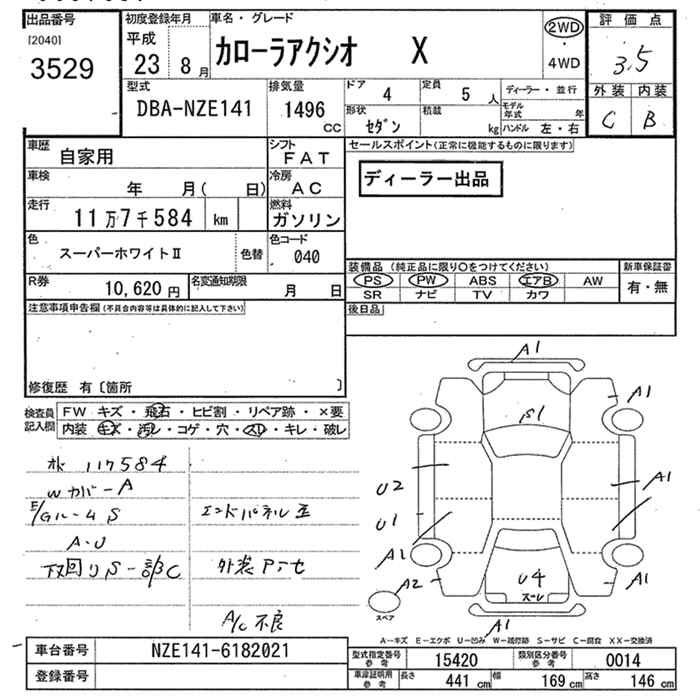 出品番号 初度登録年月 車名・グレード 2WD 評価点
[2040] 平成 カローラアクシオ X ・ 3.5
3529 23 8月 4WD
外装 内装
C B
型式 排気量 ドア 4 定員 5人 ディーラー・並行
DBA-NZE141 1496 CC 形状 セダン 積載 kg モデル年式 年
ハンドル 左・右
車歴 自家用 シフト FAT セールスポイント(正常に機能するものに限ります)
車検 年 月( 日) 冷房 AC ディーラー出品
走行 11万7千584 km 燃料 ガソリン
色 スーパーホワイトⅡ 色替 色コード 040
装備品 (純正品に限り○をつけてください) 新車保証書
R券 10,620円 名変通知期限 月 日 PS PW ABS エアB AW 有・無
SR ナビ TV カワ
注意事項申告欄(不具合内容等は具体的に記入して下さい) 後日品
修復歴 有〔箇所 〕
検査員記入欄 FW キズ・飛石・ヒビ割・リペア跡・×要
内装 キズ・汚レ・コゲ・穴・スレ・キレ・破レ
A1
A1
S1
117584
Wカバ-A
U2 A1
E/GルームS エンドパネル歪
U1
A・U
A1
下回りS-部C
A2 U4 A1
スペア
A/C不良
A1
A-キズ E-エクボ U-凹み W-補修跡 S-サビ C-腐食 XX-交換済
車台番号 NZE141-6182021 型式指定番号 参考 15420 類別区分番号 参考 0014
登録番号 車庫証明用 参考 長さ 441 cm 幅 169 cm 高さ 146 cm